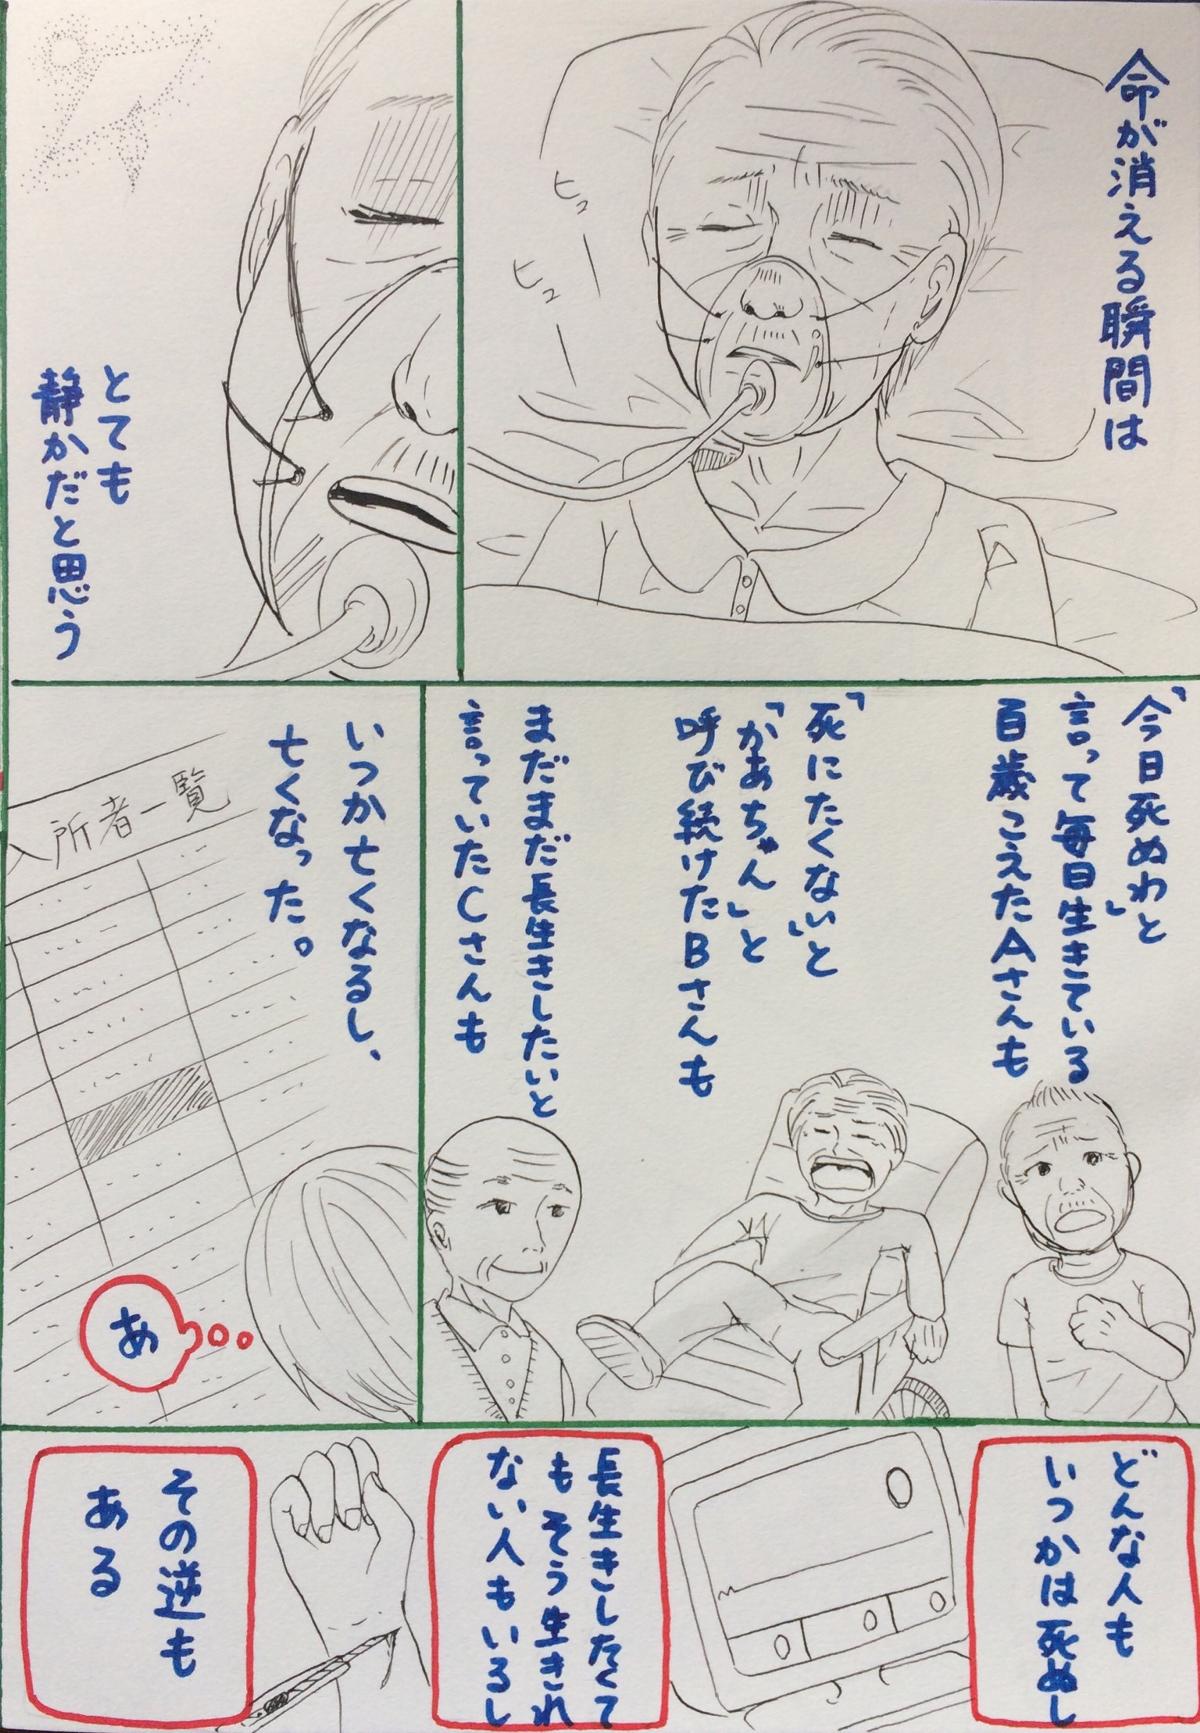 命が消える瞬間は
ヒュ
ヒュ
とても
静かだと思う
「今日死ぬわ」と
言って毎日生きている
百歳こえたAさんも
「死にたくない」と
「かあちゃん」と
呼び続けたBさんも
まだまだ長生きしたいと
言っていたCさんも
いつか亡くなるし、
亡くなった。
入所者一覧
あ
どんな人も
いつかは死ぬし
長生きしたくて
もそう生きれ
ない人もいるし
その逆も
ある